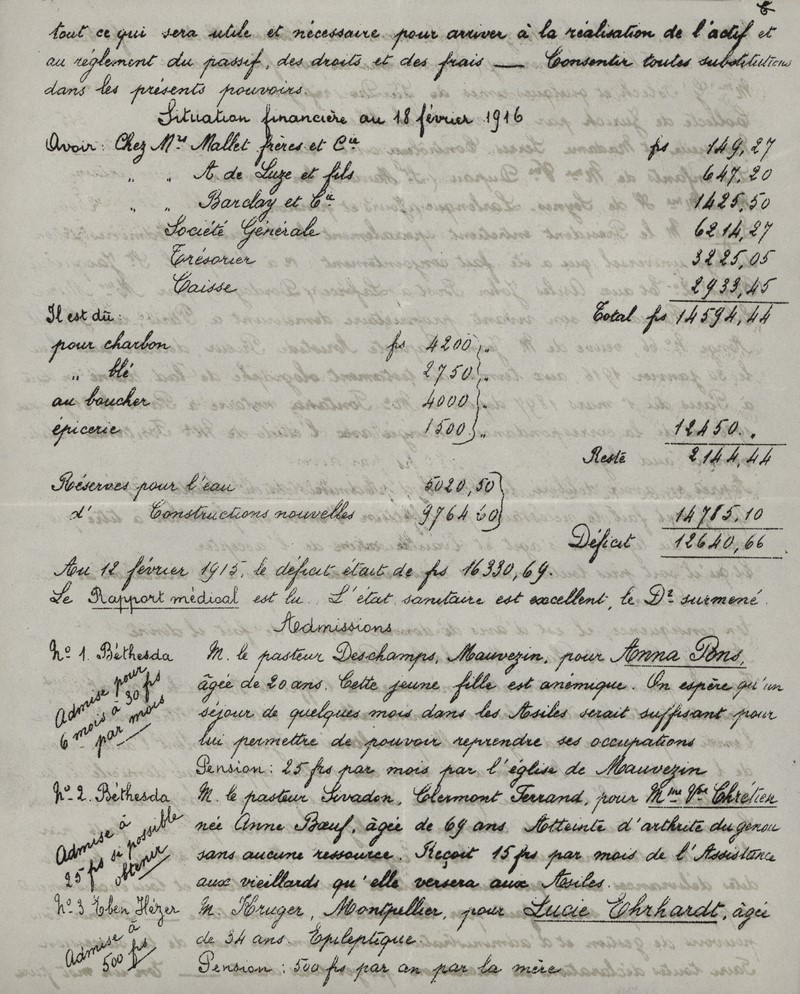 tout ce qui sera utile et nécessaire pour arriver à la réalisation de l'actif et
au réglement du passif, des droits et des frais — Consentir toutes substitutions
dans les présents pouvoirs.
Situation financière au 18 février 1916
Avoir: Chez Mrs Mallet frères et Cie frs 149,27
" " A de Luze et fils 647,20
" " Barclay et Cie 1425,50
Société Générale 6214,27
Trésorier 3225,05
Caisse 2933,45
Il est dû: Total frs 14594,44
pour charbon frs 4200 "
" blé 2750 "
au boucher 4000 "
épicerie 1500 " 12450. "
Reste 2144,44
Réserves pour l'eau 5020,50
d' Constructions nouvelles 9764 60 14785,10
Déficit 12640,66
Au 12 février 1915, le déficit était de frs 16330,69.
Le Rapport médical est lu. L'état sanitaire est excellent, le Dr surmené.
Admissions
No 1. Béthesda M. le pasteur Deschamps, Mauvezin, pour Anna Pons,
Admise pour 6 mois à 30 frs par mois
âgée de 20 ans. Cette jeune fille est anémique. On espère qu'un
séjour de quelques mois dans les Asiles serait suffisant pour
lui permettre de pouvoir reprendre ses occupations
Pension: 25 frs par mois par l'église de Mauvezin
No 2. Béthesda M. le pasteur Sivadon, Clermont Ferrand, pour Mme Vve Chrétien
Admise à 25 frs si possible obtenir
née Anne Bœuf, âgée de 69 ans Atteinte d'arthrite du genou
sans aucune ressource. Reçoit 15 frs par mois de l'Assistance
aux vieillards qu'elle versera aux Asiles.
No 3 Eben Hézer M. Kruger, Montpellier, pour Lucie Ehrhardt, âgée
Admise à 500 frs
de 34 ans. Epileptique.
Pension: 500 frs par an par la mère